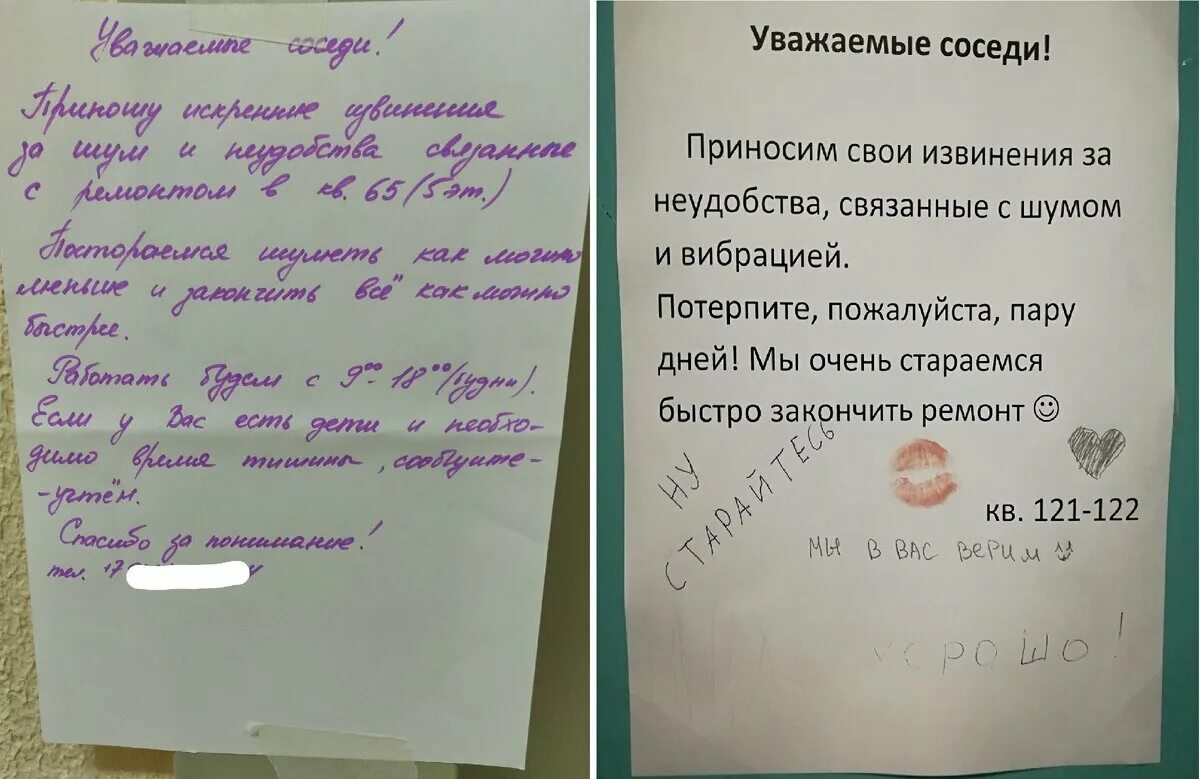 Уважаемые соседи!
Приношу искренние извинения
за шум и неудобства связанные
с ремонтом в кв. 65 (5 эт.)
Постораемся шуметь как можно
меньше и закончить всё как можно
быстрее.
Работать будем с 9⁰⁰-18⁰⁰ (будни).
Если у Вас есть дети и необхо-
димо время тишины, сообщите-
-учтём.
Спасибо за понимание!
тел.
Уважаемые соседи!
Приносим свои извинения за
неудобства, связанные с шумом
и вибрацией.
Потерпите, пожалуйста, пару
дней! Мы очень стараемся
быстро закончить ремонт ☺
НУ
СТАРАЙТЕСЬ
кв. 121-122
МЫ В ВАС ВЕРИМ
ХОРОШО!